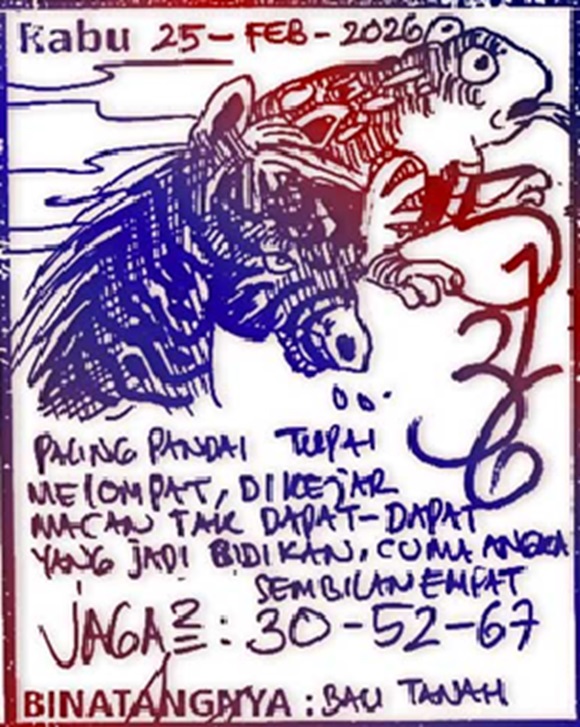 Rabu 25-FEB-2026
7
2
6
PALING PANDAI TUPAI
MELOMPAT, DIKEJAR
MACAN TAK DAPAT-DAPAT
YANG JADI BIDIKAN, CUMA ANGKA
SEMBILAN EMPAT
JAGA2 : 30-52-67
BINATANGNYA : BAU TANAH